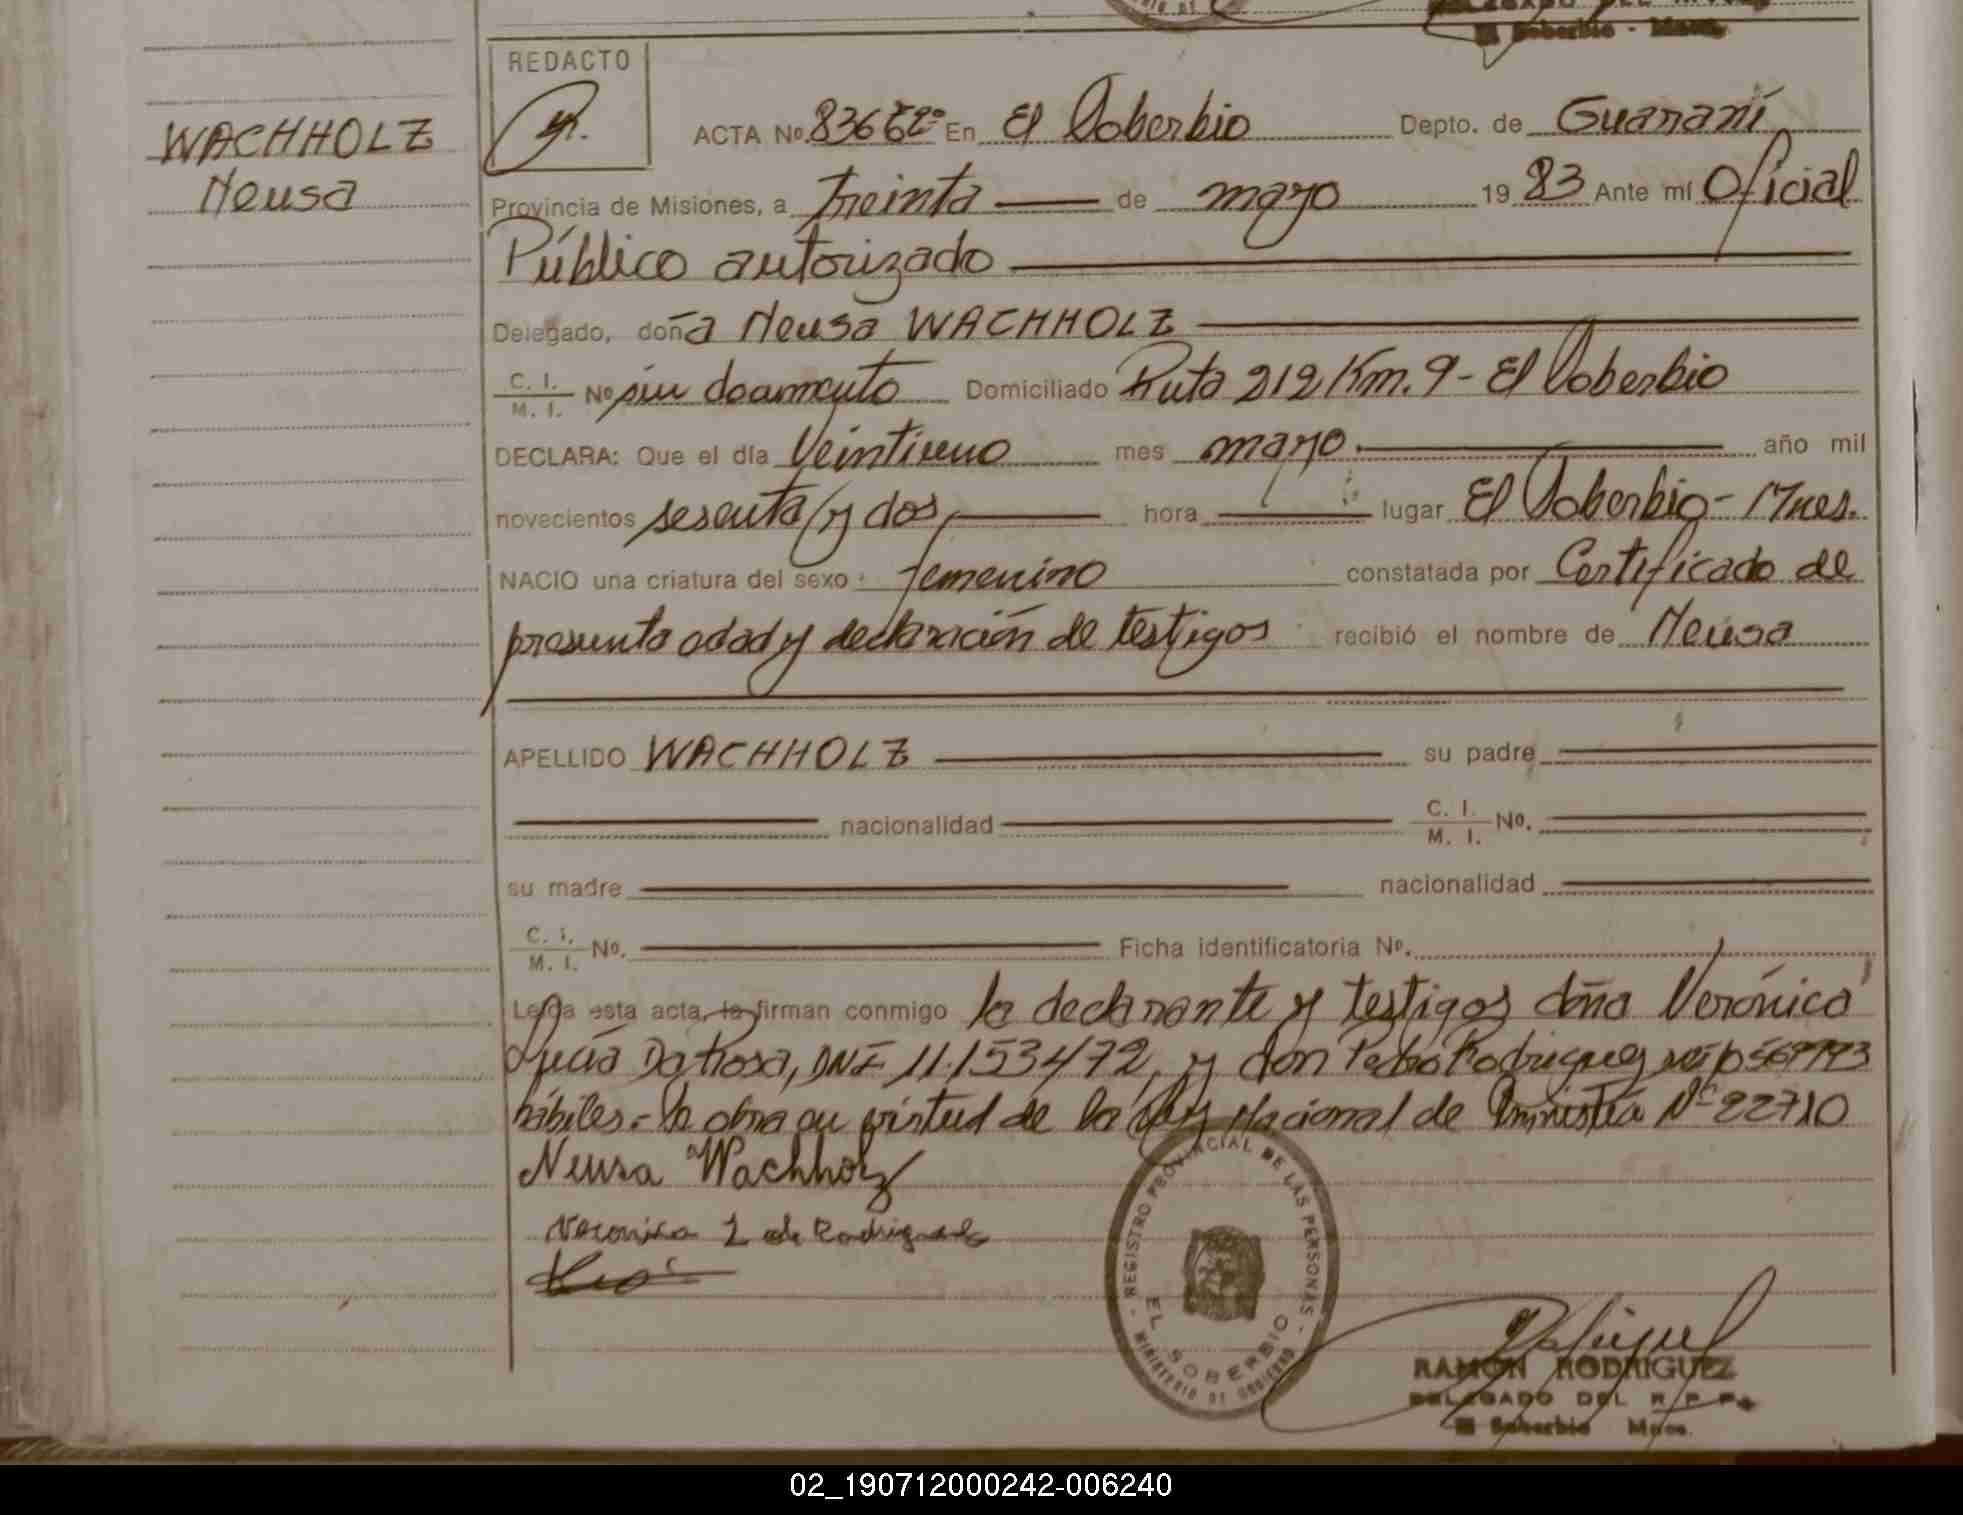 El Soberbio - Mnes.
REDACTO
WACHHOLZ
Neusa
ACTA Nº. En El Soberbio Depto. de Guaraní
Provincia de Misiones, a treinta de mayo 1983 Ante mí Oficial
Público autorizado
Delegado, doña Neusa WACHHOLZ
C. I. / M. I. Nº sin documento Domiciliado Ruta 212 Km. 9 - El Soberbio
DECLARA: Que el día Veintiuno mes mayo año mil
novecientos sesenta y dos, hora lugar El Soberbio - Mnes.
NACIO una criatura del sexo: femenino constatada por Certificado de
presunta edad y declaración de testigos recibió el nombre de Neusa
APELLIDO WACHHOLZ su padre
nacionalidad C. I. / M. I. Nº.
su madre nacionalidad
C. I. / M. I. Nº. Ficha identificatoria Nº.
Leída esta acta, la firman conmigo la declarante y testigos doña Verónica
Lucía Da Rosa, DNI 11.153472, y don Pedro Rodriguez
hábiles.- la obra en virtud de la Ley Nacional de Amnistía Nº 22710
Neusa Wachholz
Veronica L de Rodriguez
REGISTRO PROVINCIAL DE LAS PERSONAS - MINISTERIO DE GOBIERNO -
EL SOBERBIO
RAMON RODRIGUEZ
DELEGADO DEL R. P. P.
El Soberbio Mnes.
02_190712000242-006240